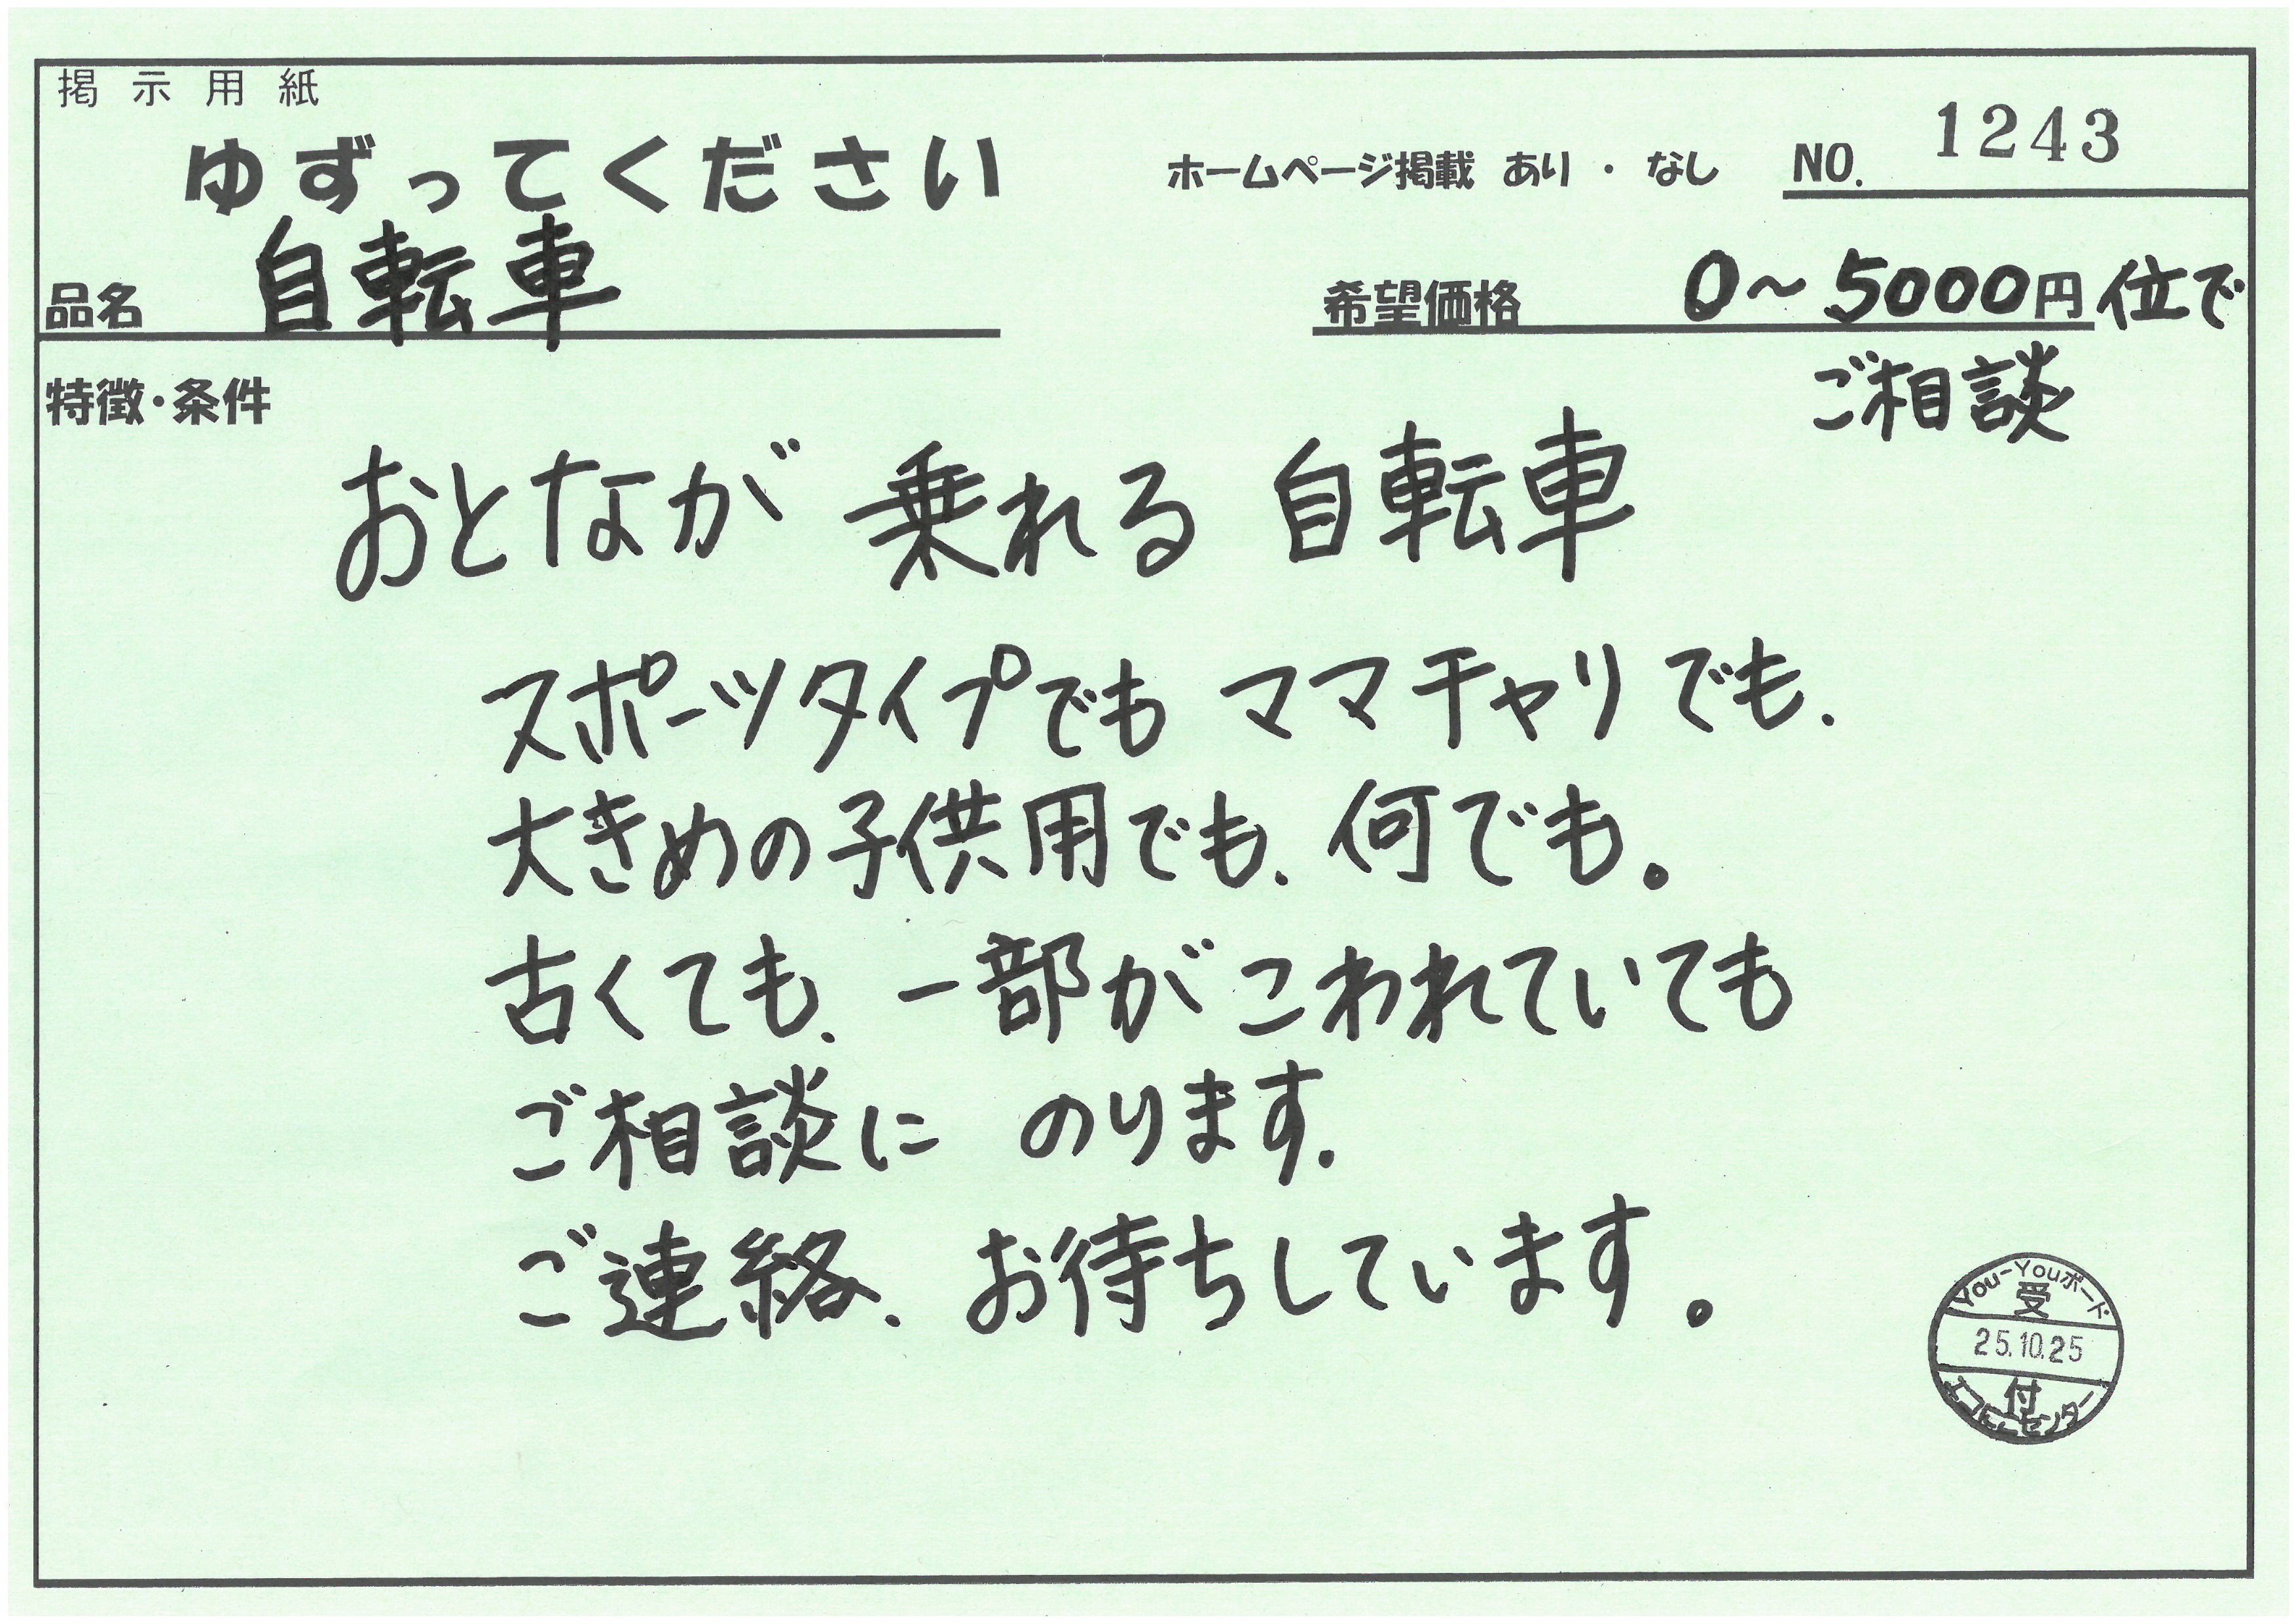 掲示用紙
ゆずってください
ホームページ掲載 あり ・ なし
NO. 1243
品名 自転車
希望価格 0～5000円位で
ご相談
特徴・条件
おとなが 乗れる 自転車
スポーツタイプでも ママチャリでも、
大きめの子供用でも、何でも。
古くても、一部がこわれていても
ご相談に のります。
ご連絡、お待ちしています。
You-Youボード
受
25.10.25
付
センター